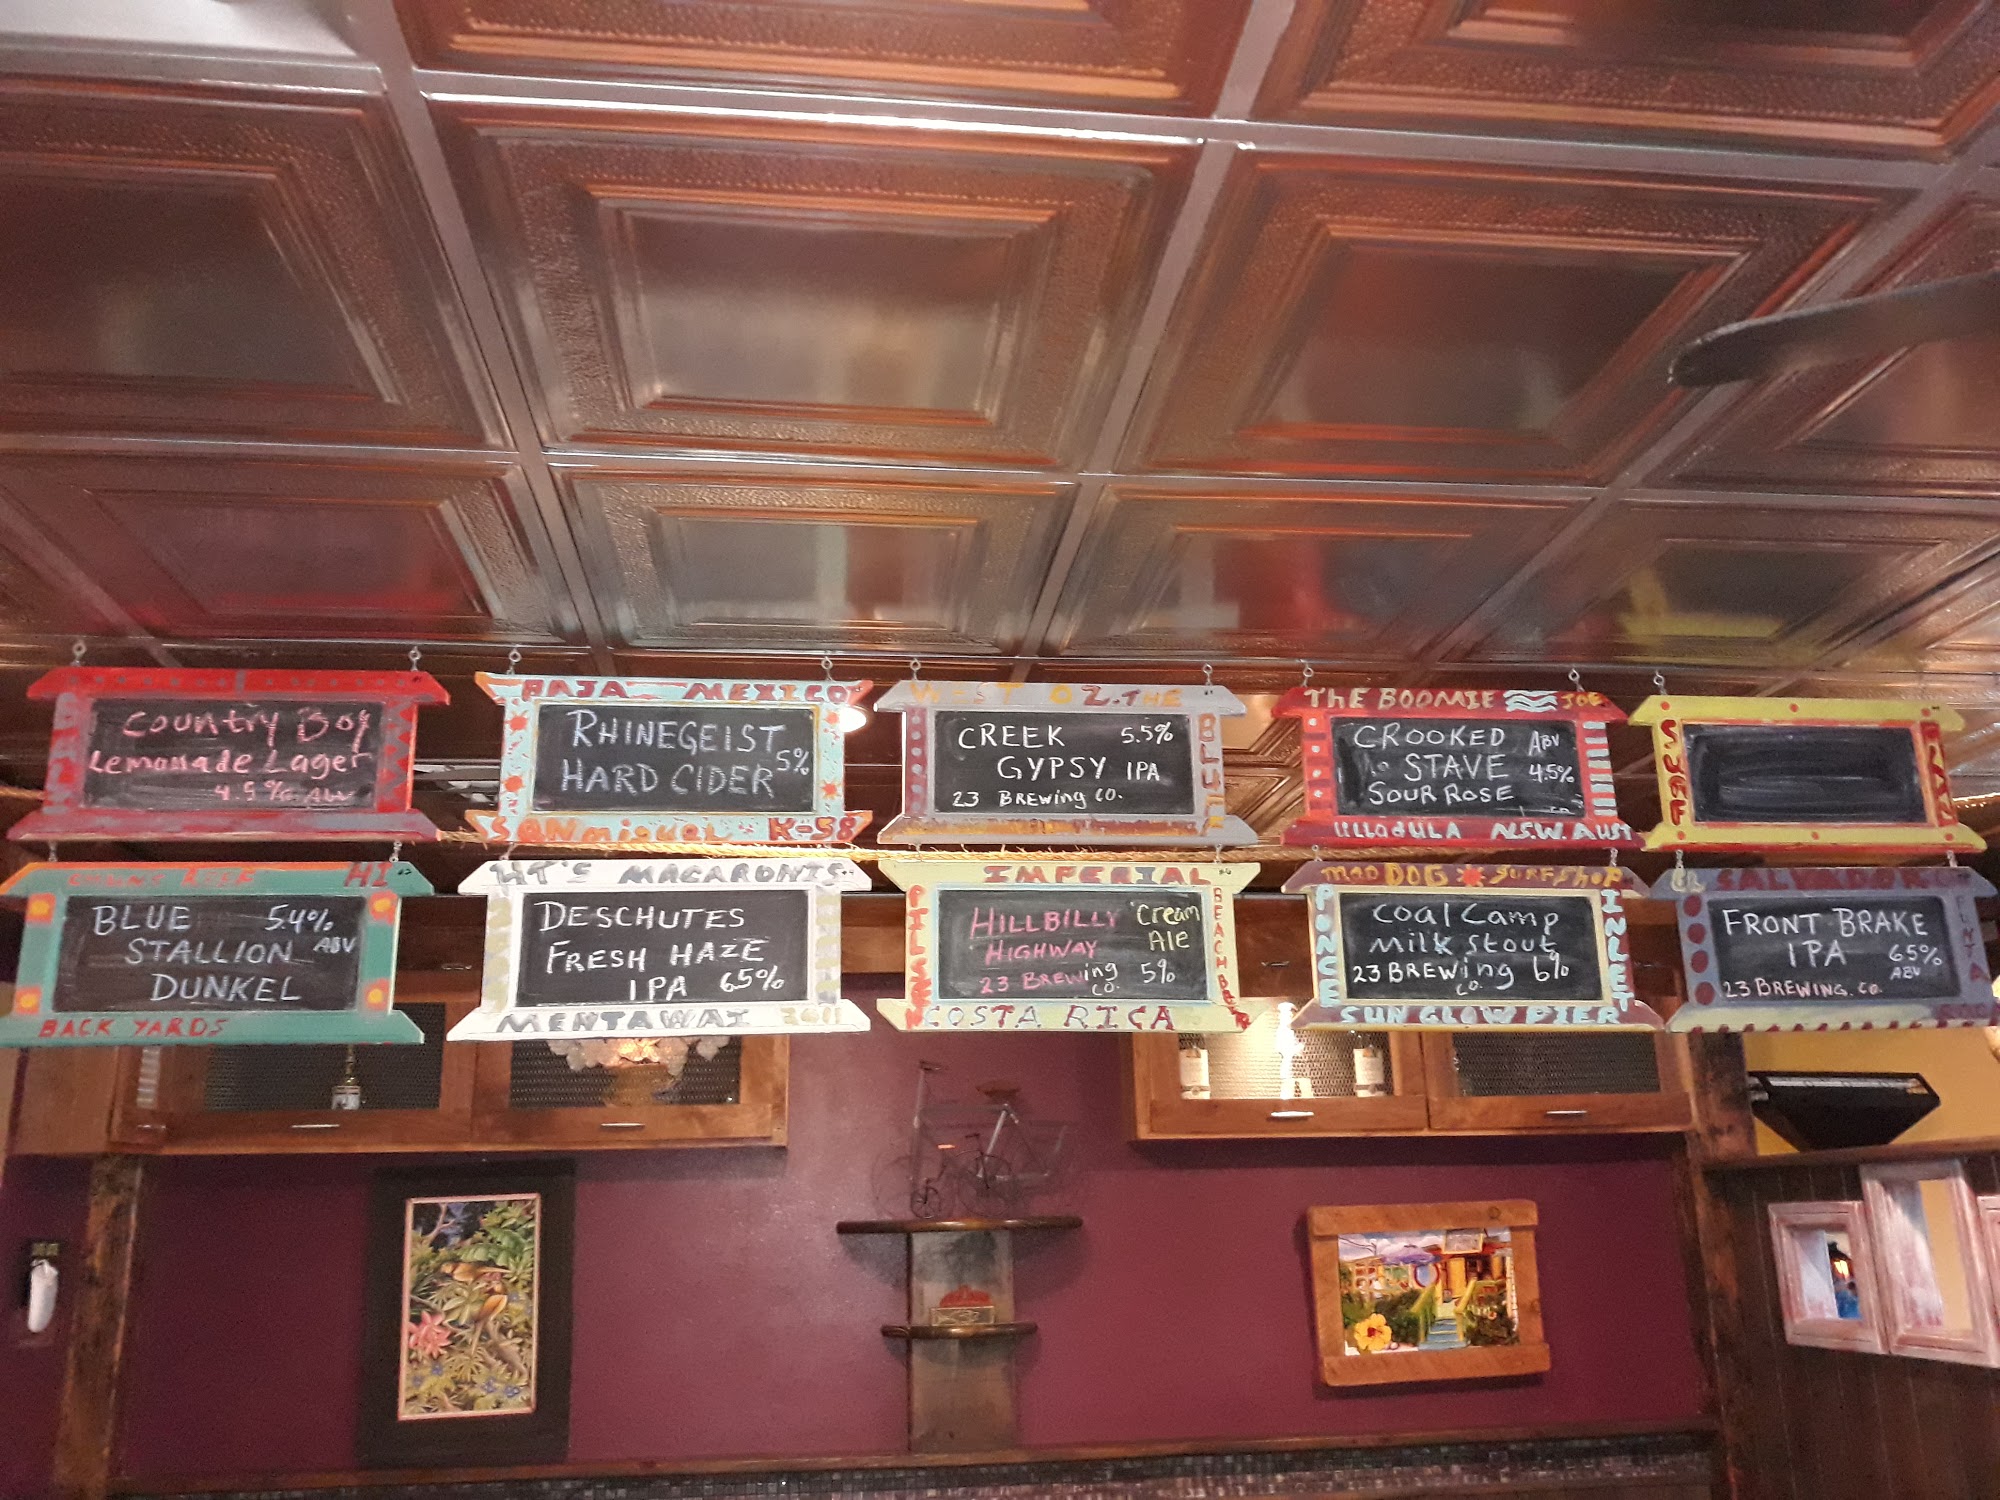 Country Boy
Lemonade Lager
4.5% ABV
BAJA MEXICO
RHINEGEIST
HARD CIDER 5%
SAN miguel K-58
WEST OZ. THE
BLUFF
CREEK 5.5%
GYPSY IPA
23 BREWING CO.
THE BOOMIE JOE
CROOKED ABV
STAVE 4.5%
SOUR ROSE
ULLADULLA N.S.W. AUST
SURF
HI
BLUE 5.4%
STALLION ABV
DUNKEL
BACK YARDS
HT'S MACARONIS
DESCHUTES
FRESH HAZE
IPA 6.5%
MENTAWAI 2011
IMPERIAL
BEACH BAR
HILLBILLY Cream
HIGHWAY Ale
23 BREWing 5%
CO.
COSTA RICA
MAD DOG SURF SHOP
PONCE
INLET
Coal Camp
Milk Stout
23 BREWing 6%
CO.
SUN GLOW PIER
EL SALVADOR
PUNTA
ROCA
FRONT BRAKE
IPA 6.5%
ABV
23 BREWING. CO.